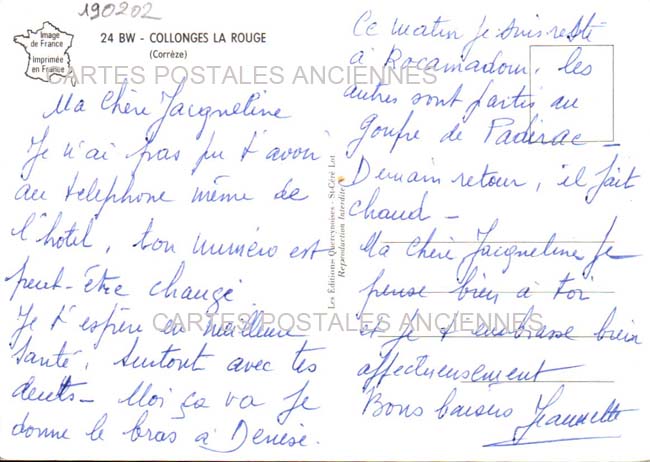 190202
Image
de France
Imprimée
en France
24 BW - COLLONGES LA ROUGE
(Corrèze)
CARTES POSTALES ANCIENNES
Ma Chère Jacqueline
Je n'ai pas pu t'avoir
au telephone même de
l'hôtel, ton numéro est
peut-être changé
Je t'espère en meilleure
santé, surtout avec tes
dents - Moi ça va je
donne le bras à Denise.
Les Éditions Quercynoises - St-Céré Lot
Reproduction Interdite
Ce matin je suis resté
à Rocamadour, les
autres sont partis au
gouffre de Padirac -
Demain retour, il fait
chaud -
Ma Chère Jacqueline je
pense bien à toi
CARTES POSTALES ANCIENNES
et je t'embrasse bien
affectueusement
Bons baisers Jeannette